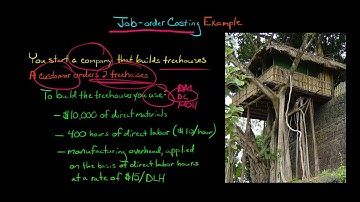 Job-order Costing Example
You start a company that builds treehouses
A customer orders 2 treehouses
To build the treehouses you use:
DM
DL
MOH
- $10,000 of direct materials
- 400 hours of direct labor ($10/hour)
- manufacturing overhead, applied
on the basis of direct labor hours
at a rate of $15/DLH